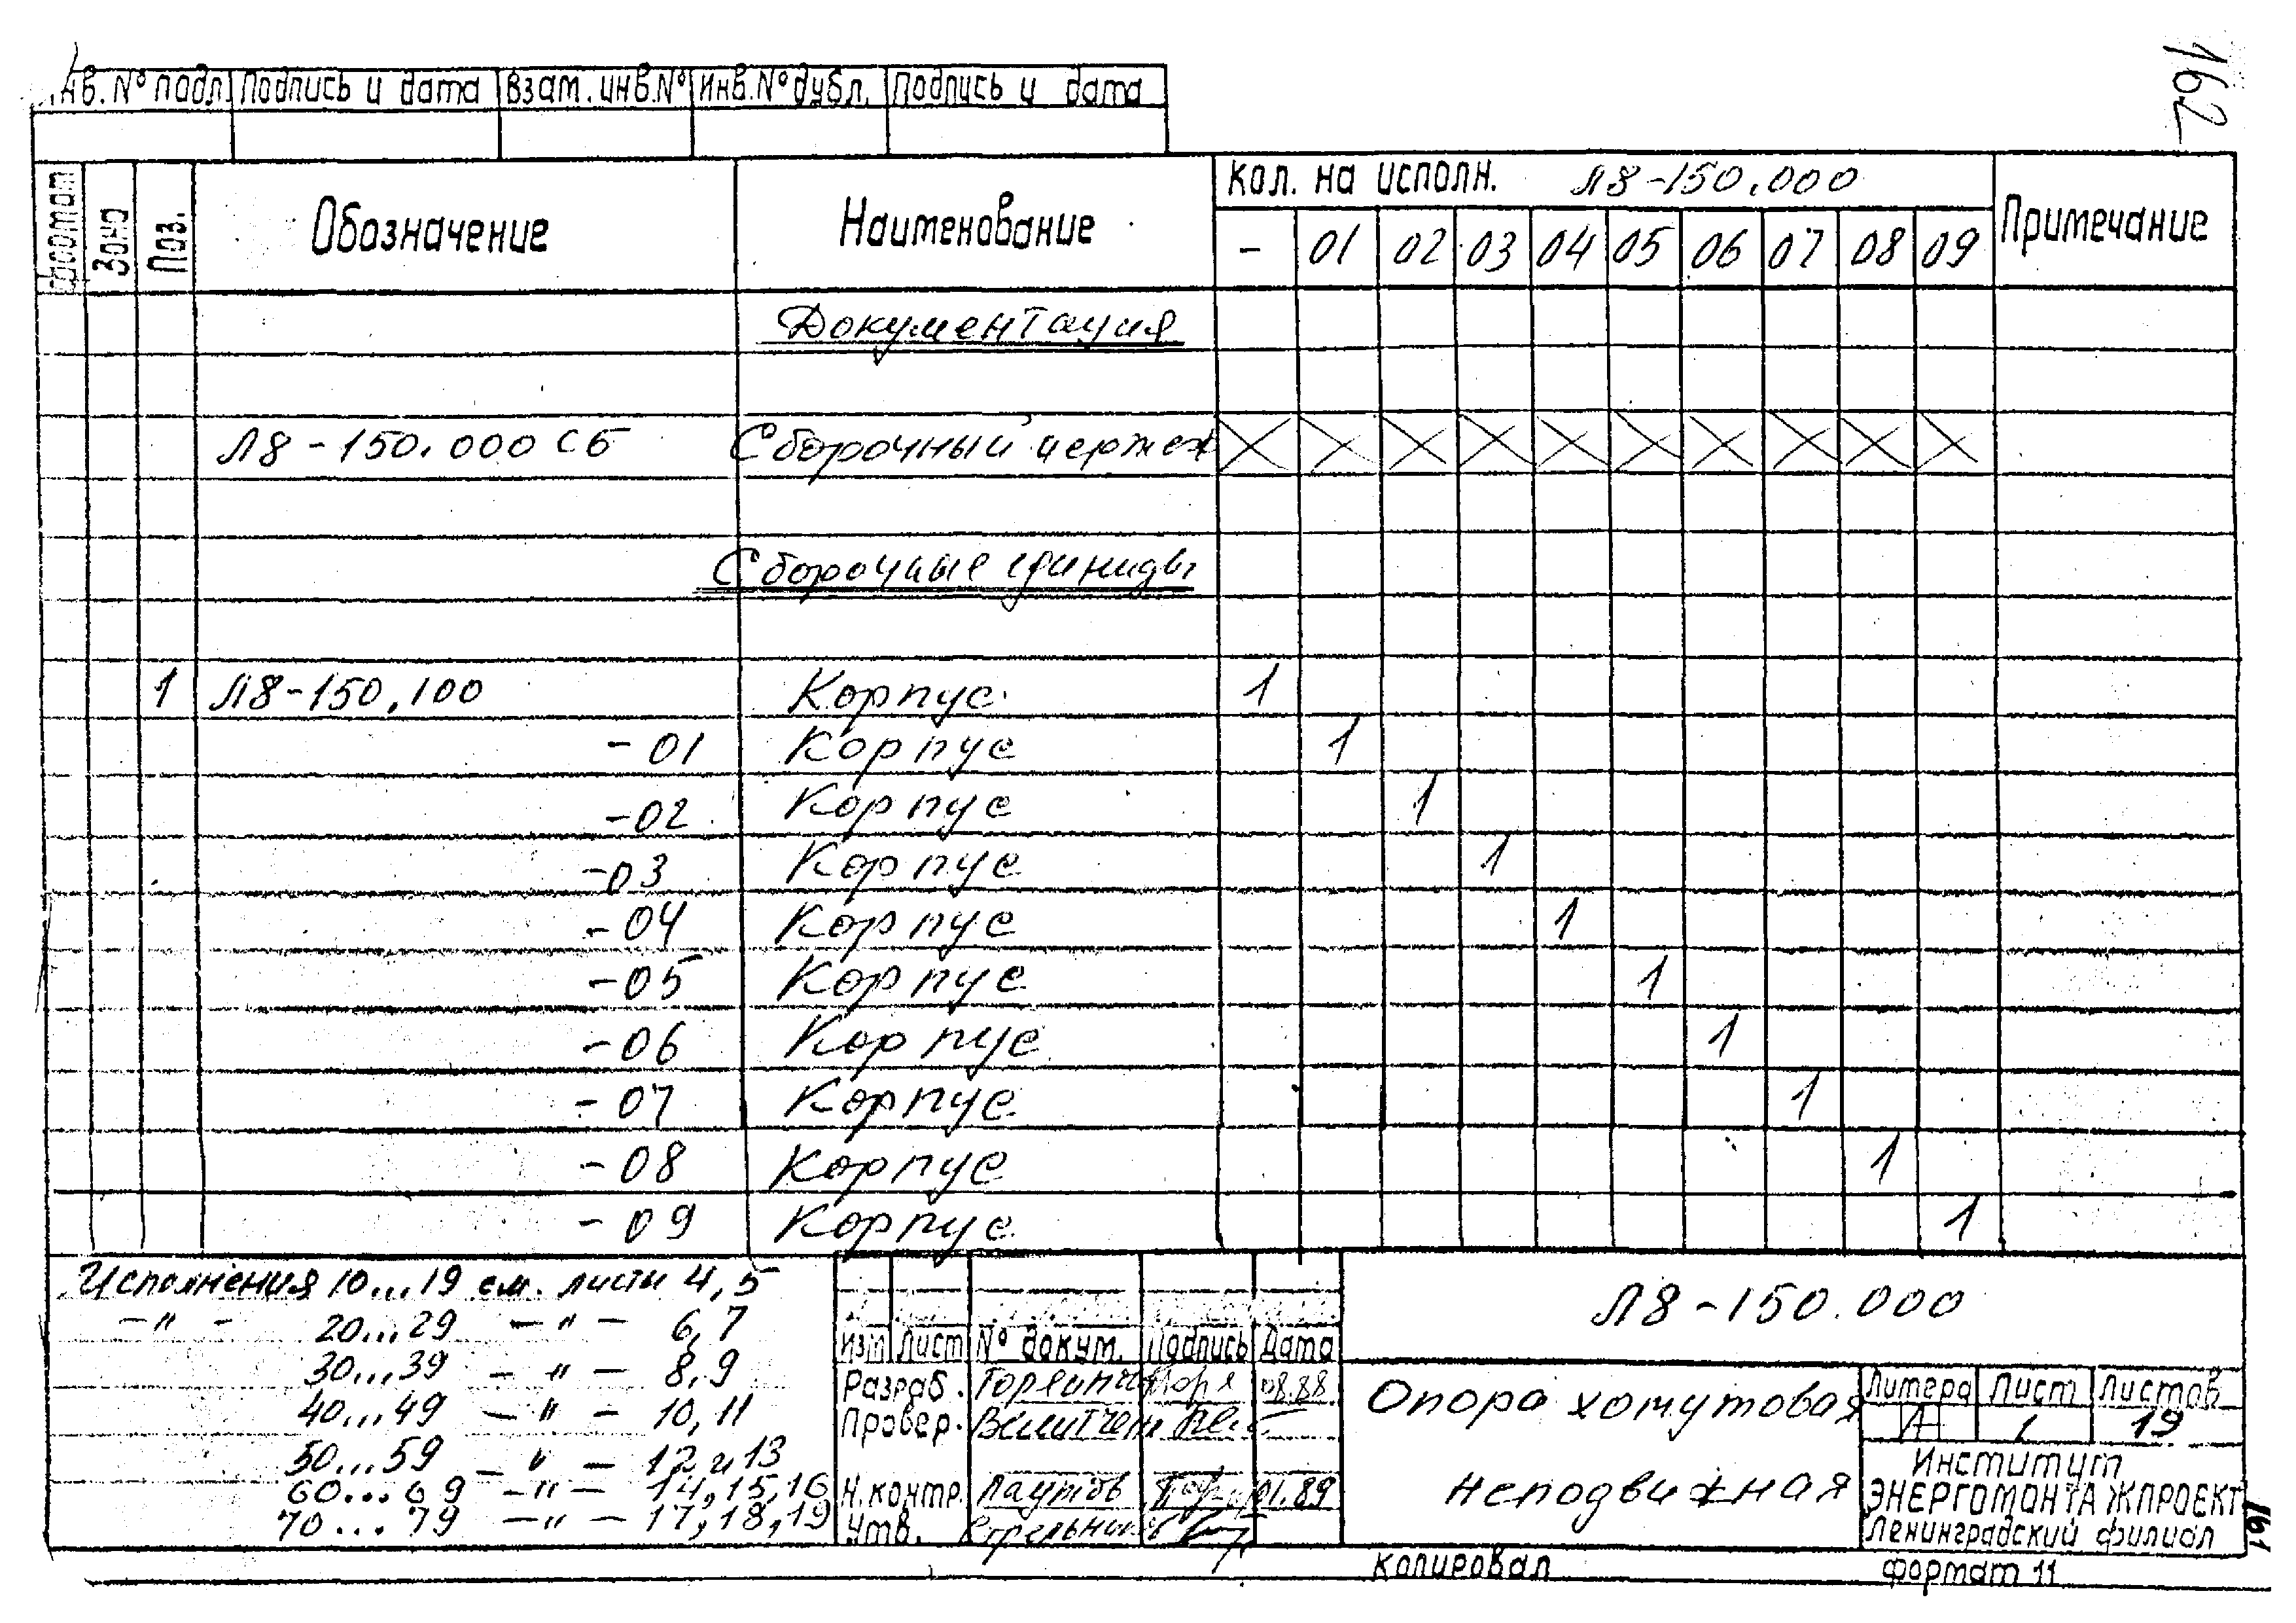 162
Инв. № подл. Подпись и дата Взам. инв. № Инв. № дубл. Подпись и дата
Формат Зона Поз. Обозначение Наименование Кол. на исполн. Л8-150.000 Примечание
- 01 02 03 04 05 06 07 08 09
Документация
Л8-150.000 СБ Сборочный чертеж
Сборочные единицы
1 Л8-150.100 Корпус 1
-01 Корпус 1
-02 Корпус 1
-03 Корпус 1
-04 Корпус 1
-05 Корпус 1
-06 Корпус 1
-07 Корпус 1
-08 Корпус 1
-09 Корпус 1
Исполнения 10...19 см. листы 4, 5
-"- 20...29 -"- 6, 7
30...39 -"- 8, 9
40...49 -"- 10, 11
50...59 -"- 12 и 13
60...69 -"- 14, 15, 16
70...79 -"- 17, 18, 19
Изм Лист № докум. Подпись Дата
Разраб. 08.88
Провер.
Н.контр. Лаутов 01.89
Утв.
Л8-150.000
Опора хомутовая
неподвижная
Литера Лист Листов
И 1 19
Институт
ЭНЕРГОМОНТАЖПРОЕКТ
Ленинградский филиал
161
Копировал Формат 11